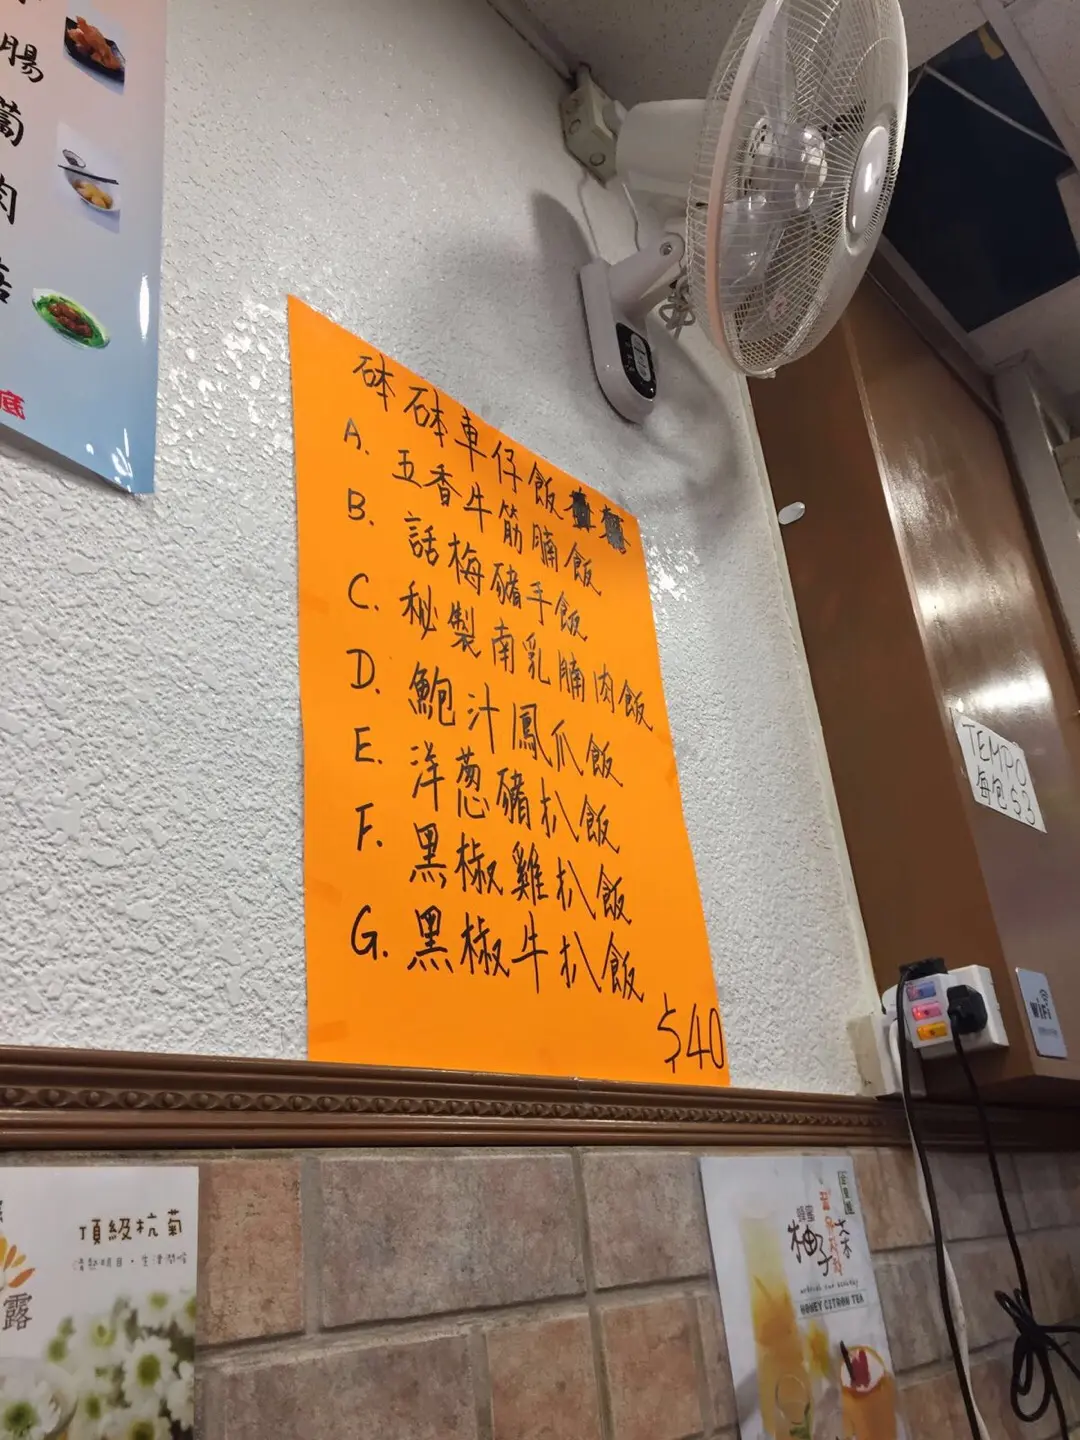 腸
蔔
肉
底
砵砵車仔飯
A. 五香牛筋腩飯
B. 話梅豬手飯
C. 秘製南乳腩肉飯
D. 鮑汁鳳爪飯
E. 洋葱豬扒飯
F. 黑椒雞扒飯
G. 黑椒牛扒飯
$40
TEMPO
每包$3
WiFi
頂級杭菊
露
蜂蜜
柚子
HONEY CITRON TEA